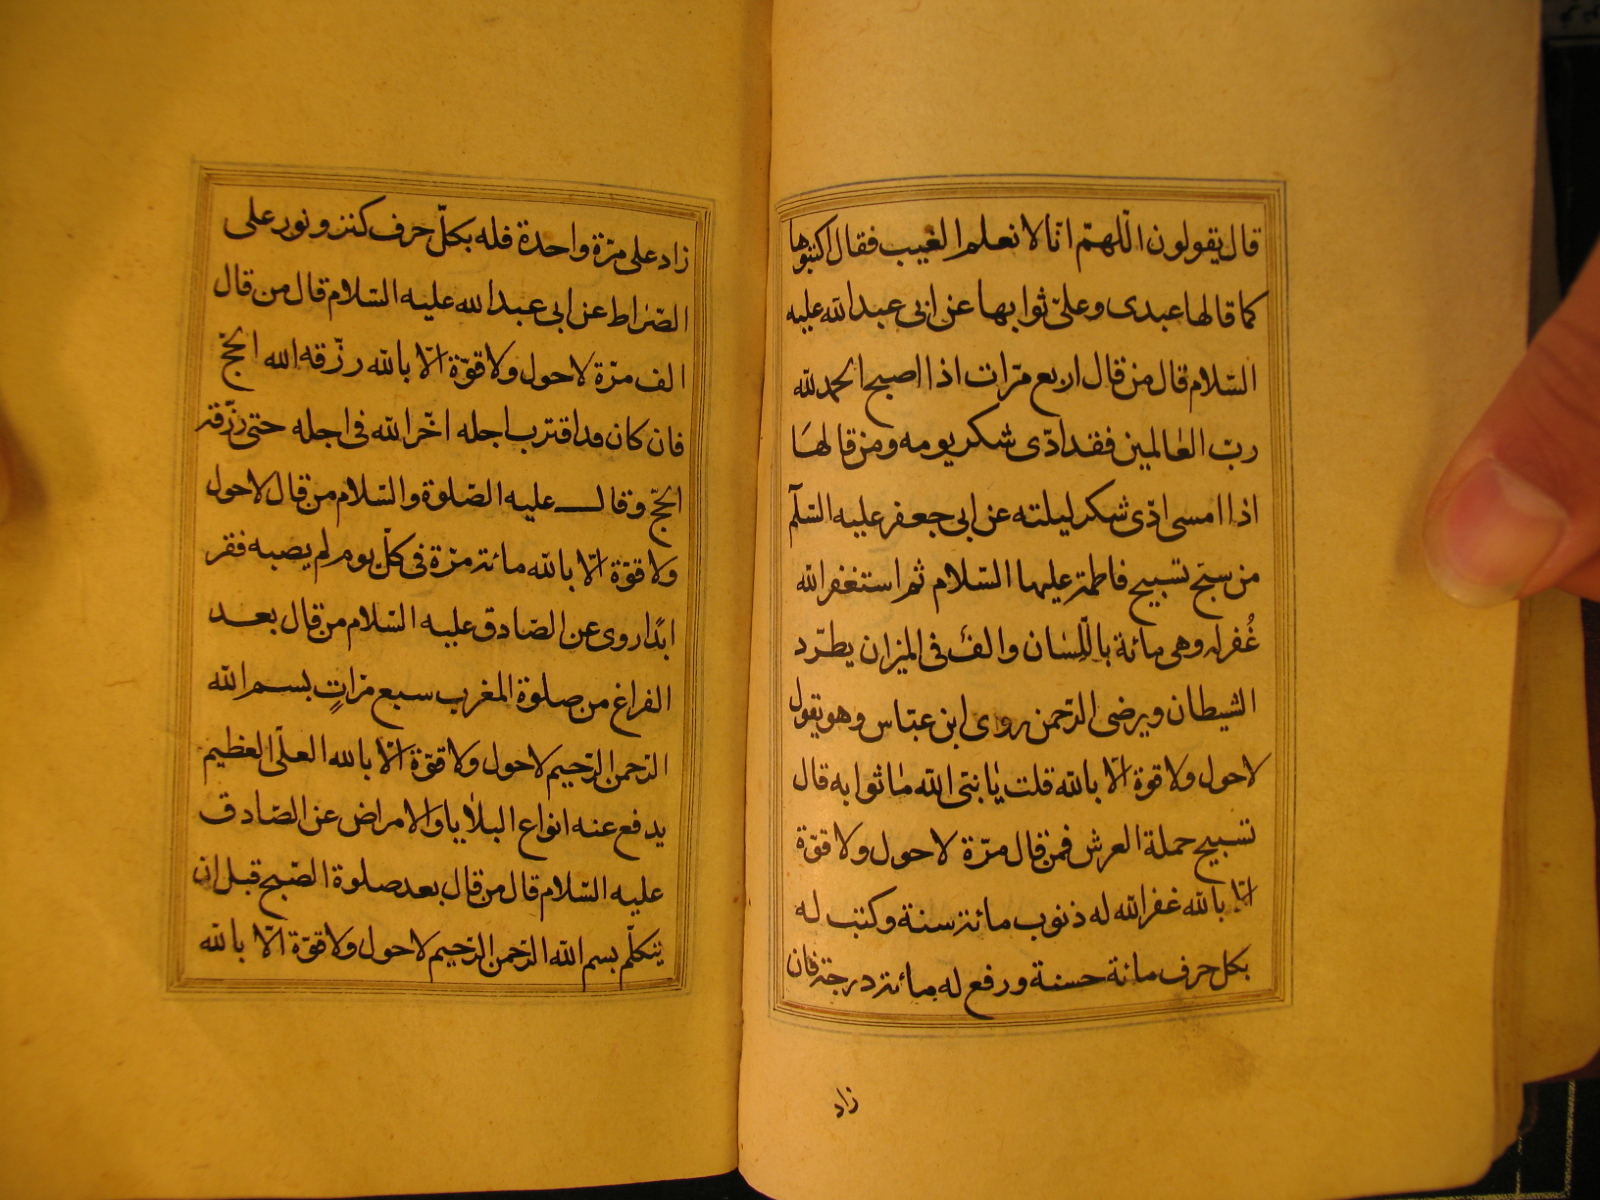 قال يقولون اللّهمّ انّا لا نعلم الغيب فقال اكتبوها
كما قالها عبدى وعلىّ ثوابها عن ابى عبد الله عليه
السّلام قال من قال اربع مرّات اذا اصبح الحمد لله
ربّ العالمين فقد ادّى شكر يومه ومن قالها
اذا امسى ادّى شكر ليلته عن ابى جعفر عليه السّلم
من سبّح تسبيح فاطمة عليها السّلام ثم استغفر الله
غُفر له وهى مائة باللّسان والف فى الميزان يطرّد
الشيطان ويرضى الرّحمن روى ابن عبّاس وهو يقول
لا حول ولا قوة الّا بالله قلت يا نبىّ الله ما ثوابه قال
تسبيح حملة العرش فمن قال مرّة لا حول ولا قوّة
الّا بالله غفر الله له ذنوب مائة سنة وكتب له
بكل حرف مائة حسنة ورفع له مائة درجة فان
زاد
زاد على مرّة واحدة فله بكلّ حرف كنز ونور على
الصّراط عن ابى عبد الله عليه السّلام قال من قال
الف مرّة لا حول ولا قوّة الّا بالله رزّقه الله الحجّ
فان كان قد اقترب اجله اخّر الله فى اجله حتى رزّقه
الحجّ وقال عليه الصّلوة والسّلام من قال لا حول
ولا قوّة الّا بالله مائة مرّة فى كلّ يوم لم يصبه فقر
ابدًا روى عن الصّادق عليه السّلام من قال بعد
الفراغ من صلوة المغرب سبع مرّاتٍ بسم الله
الرّحمن الرّحيم لا حول ولا قوّة الّا بالله العلّى العظيم
يدفع عنه انواع البلايا والامراض عن الصّادق
عليه السّلام قال من قال بعد صلوة الصّبح قبل ان
يتكلّم بسم الله الرّحمن الرّحيم لا حول ولا قوّة الّا بالله